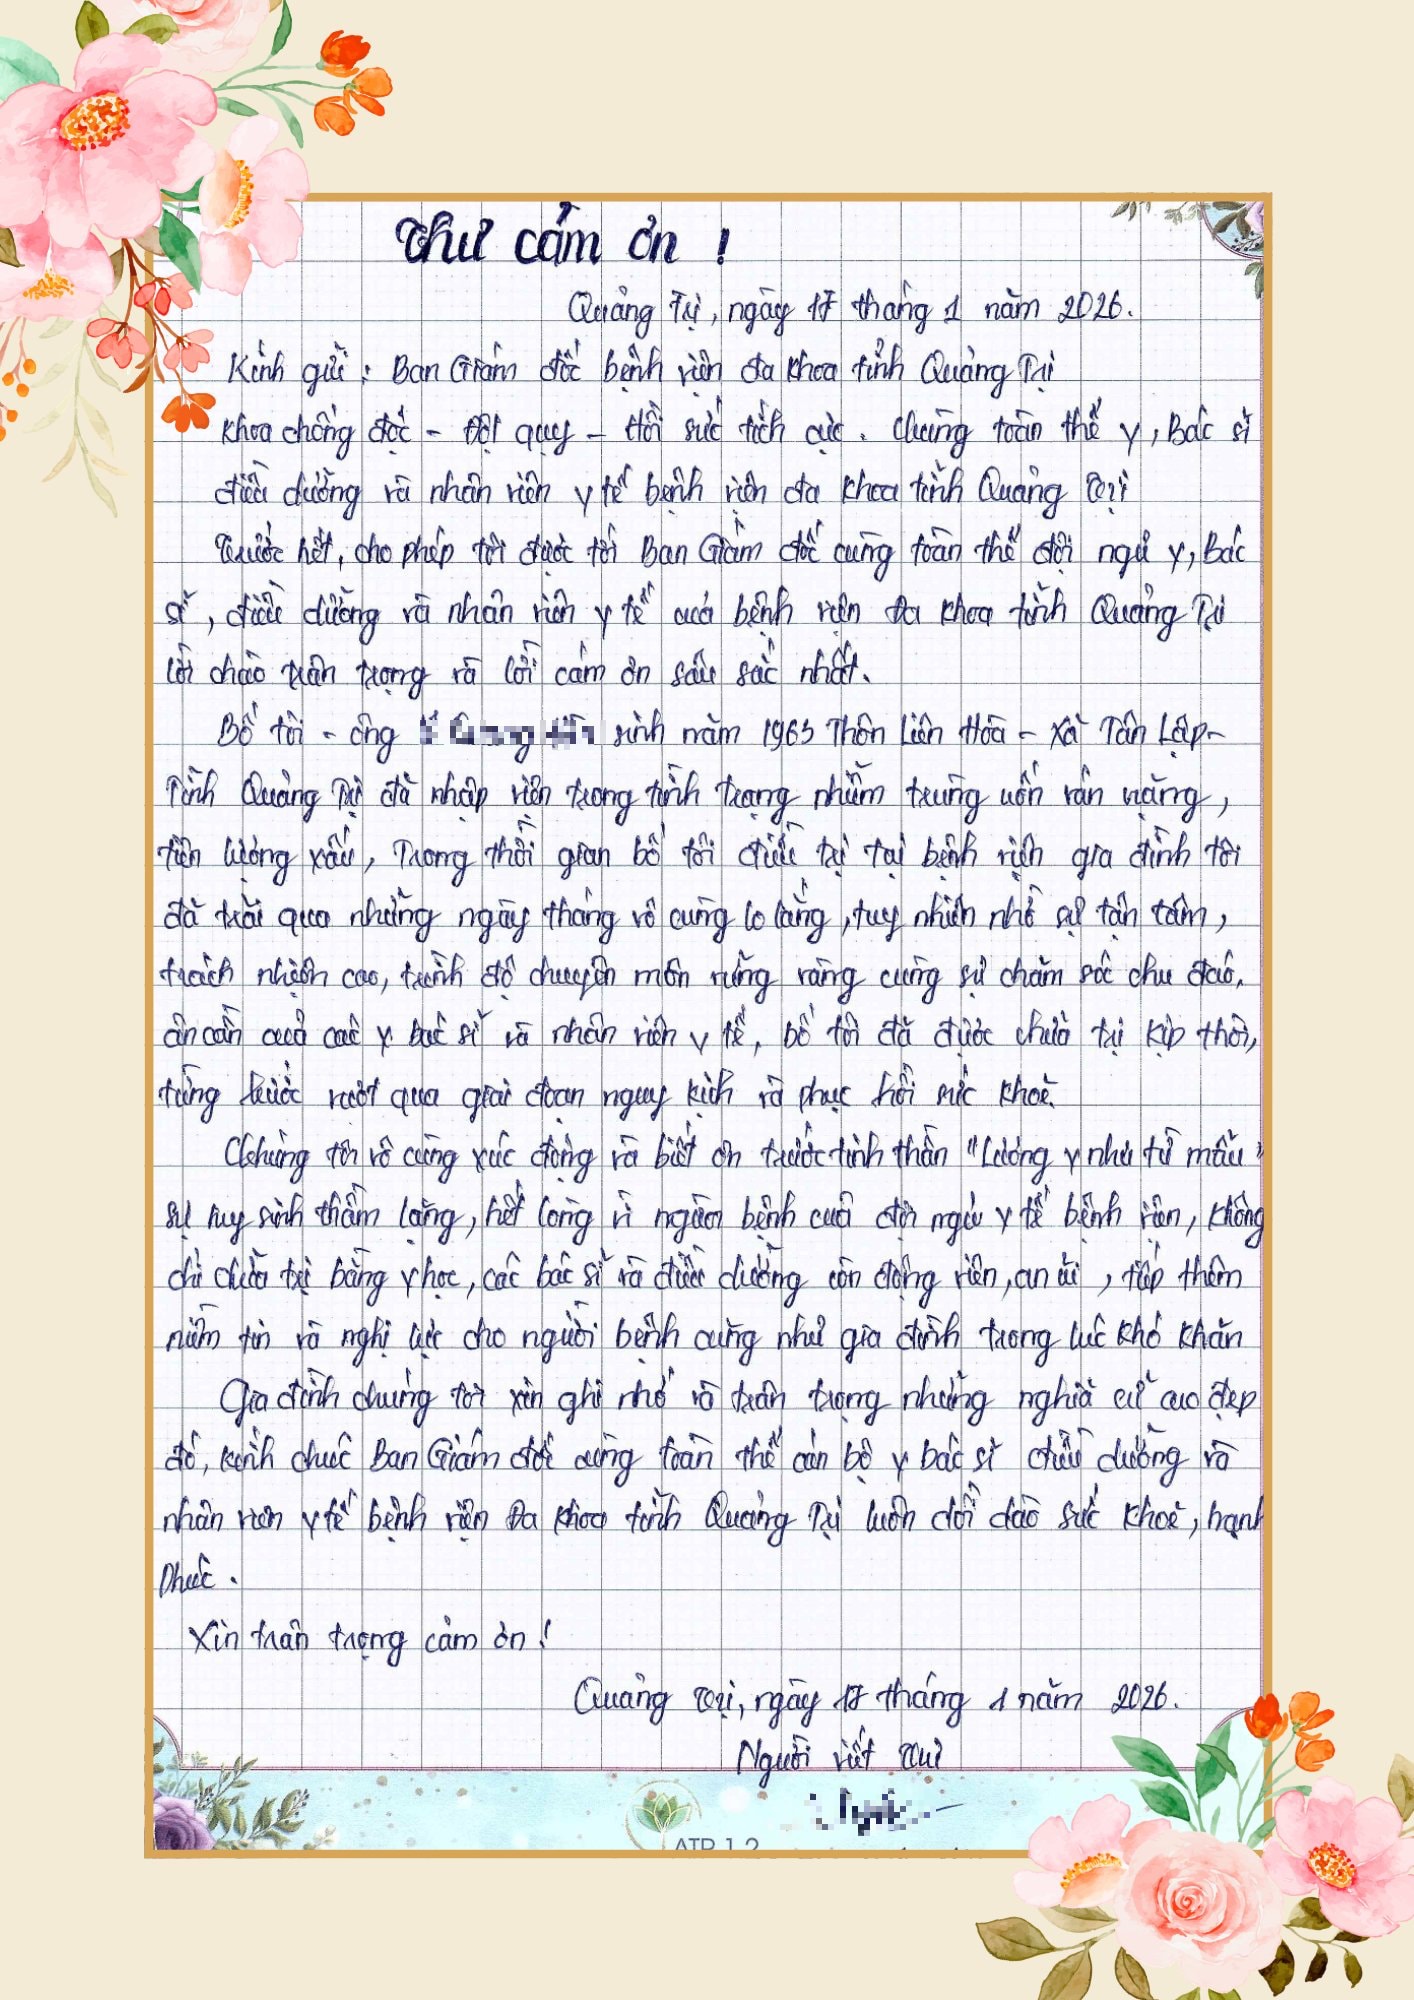 Thư cảm ơn !
Quảng Trị, ngày 17 tháng 1 năm 2026.
Kính gửi : Ban Giám đốc bệnh viện đa khoa tỉnh Quảng Trị
Khoa chống độc - Đột quỵ - Hồi sức tích cực. Cùng toàn thể y, Bác sĩ
điều dưỡng và nhân viên y tế bệnh viện đa khoa tỉnh Quảng Trị
Trước hết, cho phép tôi được tới Ban Giám đốc cùng toàn thể đội ngũ y, Bác
sĩ, điều dưỡng và nhân viên y tế của bệnh viện Đa khoa tỉnh Quảng Trị
lời chào trân trọng và lời cảm ơn sâu sắc nhất.
Bố tôi - ông sinh năm 1963 Thôn Liên Hòa - Xã Tân Lập -
Tỉnh Quảng Trị đã nhập viện trong tình trạng nhiễm trùng uốn ván nặng,
tiên lượng xấu, Trong thời gian bố tôi điều trị tại bệnh viện gia đình tôi
đã trải qua những ngày tháng vô cùng lo lắng, tuy nhiên nhờ sự tận tâm,
trách nhiệm cao, trình độ chuyên môn vững vàng cùng sự chăm sóc chu đáo,
ân cần của các y bác sĩ và nhân viên y tế, bố tôi đã được chữa trị kịp thời,
từng bước vượt qua giai đoạn nguy kịch và phục hồi sức khoẻ.
Chúng tôi vô cùng xúc động và biết ơn trước tinh thần "Lương y như từ mẫu"
sự hy sinh thầm lặng, hết lòng vì người bệnh của đội ngũ y tế bệnh viện, không
chỉ chữa trị bằng y học, các bác sĩ và điều dưỡng còn động viên, an ủi, tiếp thêm
niềm tin và nghị lực cho người bệnh cũng như gia đình trong lúc khó khăn
Gia đình chúng tôi xin ghi nhớ và trân trọng những nghĩa cử cao đẹp
đó, kính chúc Ban Giám đốc cùng toàn thể cán bộ y bác sĩ điều dưỡng và
nhân viên y tế bệnh viện Đa khoa tỉnh Quảng Trị luôn dồi dào sức khoẻ, hạnh
phúc.
Xin trân trọng cảm ơn !
Quảng Trị, ngày 17 tháng 1 năm 2026.
Người viết thư